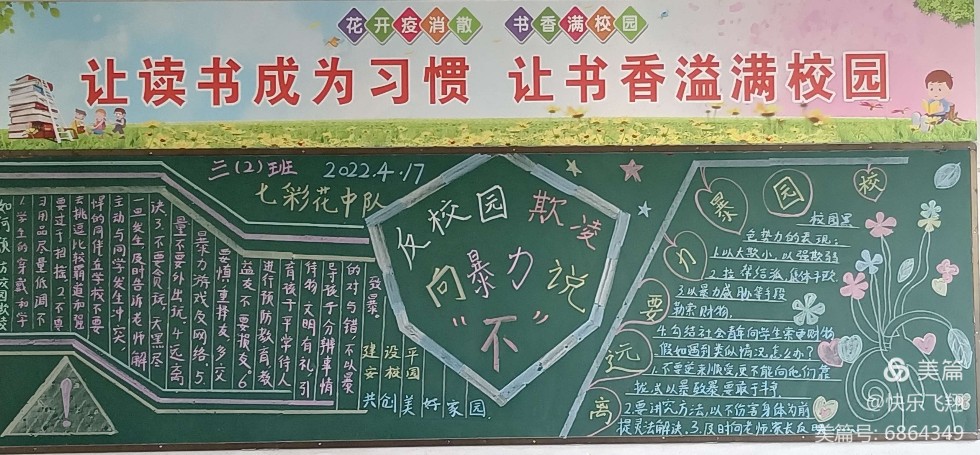 花开疫消散 书香满校园
让读书成为习惯 让书香溢满校园
三(2)班 2022.4.17
七彩花中队
反校园欺凌
向暴力说
“不”
如何预防校园欺凌
1.学生的穿戴和学
习用品尽量低调不
要过于招摇2.不要
去挑逗比较霸道加强
悍的同伴在学校不要
主动与同学发生冲突,
一旦发生及时告诉老师解
决3.不要贪玩,天黑尽
量不要外出玩.4.远离
暴力游戏及网络.5.
要慎重择友,多交
益友不要损友.6.
进行预防教育,教
育孩子平学待人
待物,文明有礼引
导孩子分辨事情
的对与错,不以暴
致暴.
建设平
安校园
共创美好家园.
校园暴力要远离
校园黑
色势力的表现:
1.以大欺小,以强欺弱
2.拉帮结派,集体干败
3.以暴力威胁等手段
勒索财物.
4.勾结社会青年向学生索要财物
假如遇到类似情况,怎么办?
1.不要逆来顺受更不能向他们靠
拢或以暴致暴要敢于斗争
2.要讲究方法,以不伤害身体为前
提灵法解决.3.及时向老师、家长反
美篇
@快乐飞翔
美篇号: 6864349